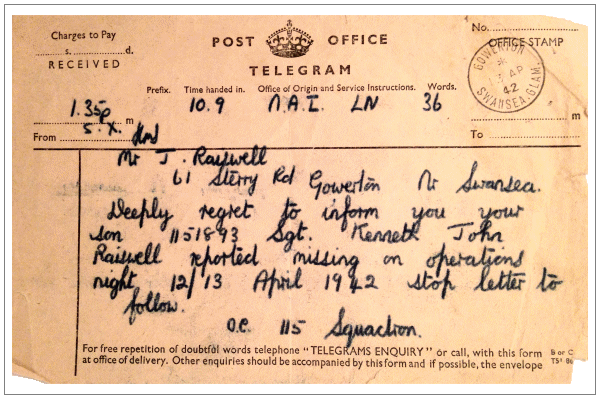 Charges to Pay
s. d.
RECEIVED
POST OFFICE
TELEGRAM
No.
OFFICE STAMP
GOWERTON
AP
42
SWANSEA, GLAM.
Prefix. Time handed in. Office of Origin and Service Instructions. Words.
1.35p 10.9 N.A.I. LN 36
m
From
To
m
Mr J. Raiswell
61 Sterry Rd Gowerton Nr Swansea.
Deeply regret to inform you your
son 1151893 Sgt. Kenneth John
Raiswell reported missing on operations
night 12/13 April 1942 stop letter to
follow.
O.C. 115 Squadron.
For free repetition of doubtful words telephone "TELEGRAMS ENQUIRY" or call, with this form
at office of delivery. Other enquiries should be accompanied by this form and if possible, the envelope
B or C